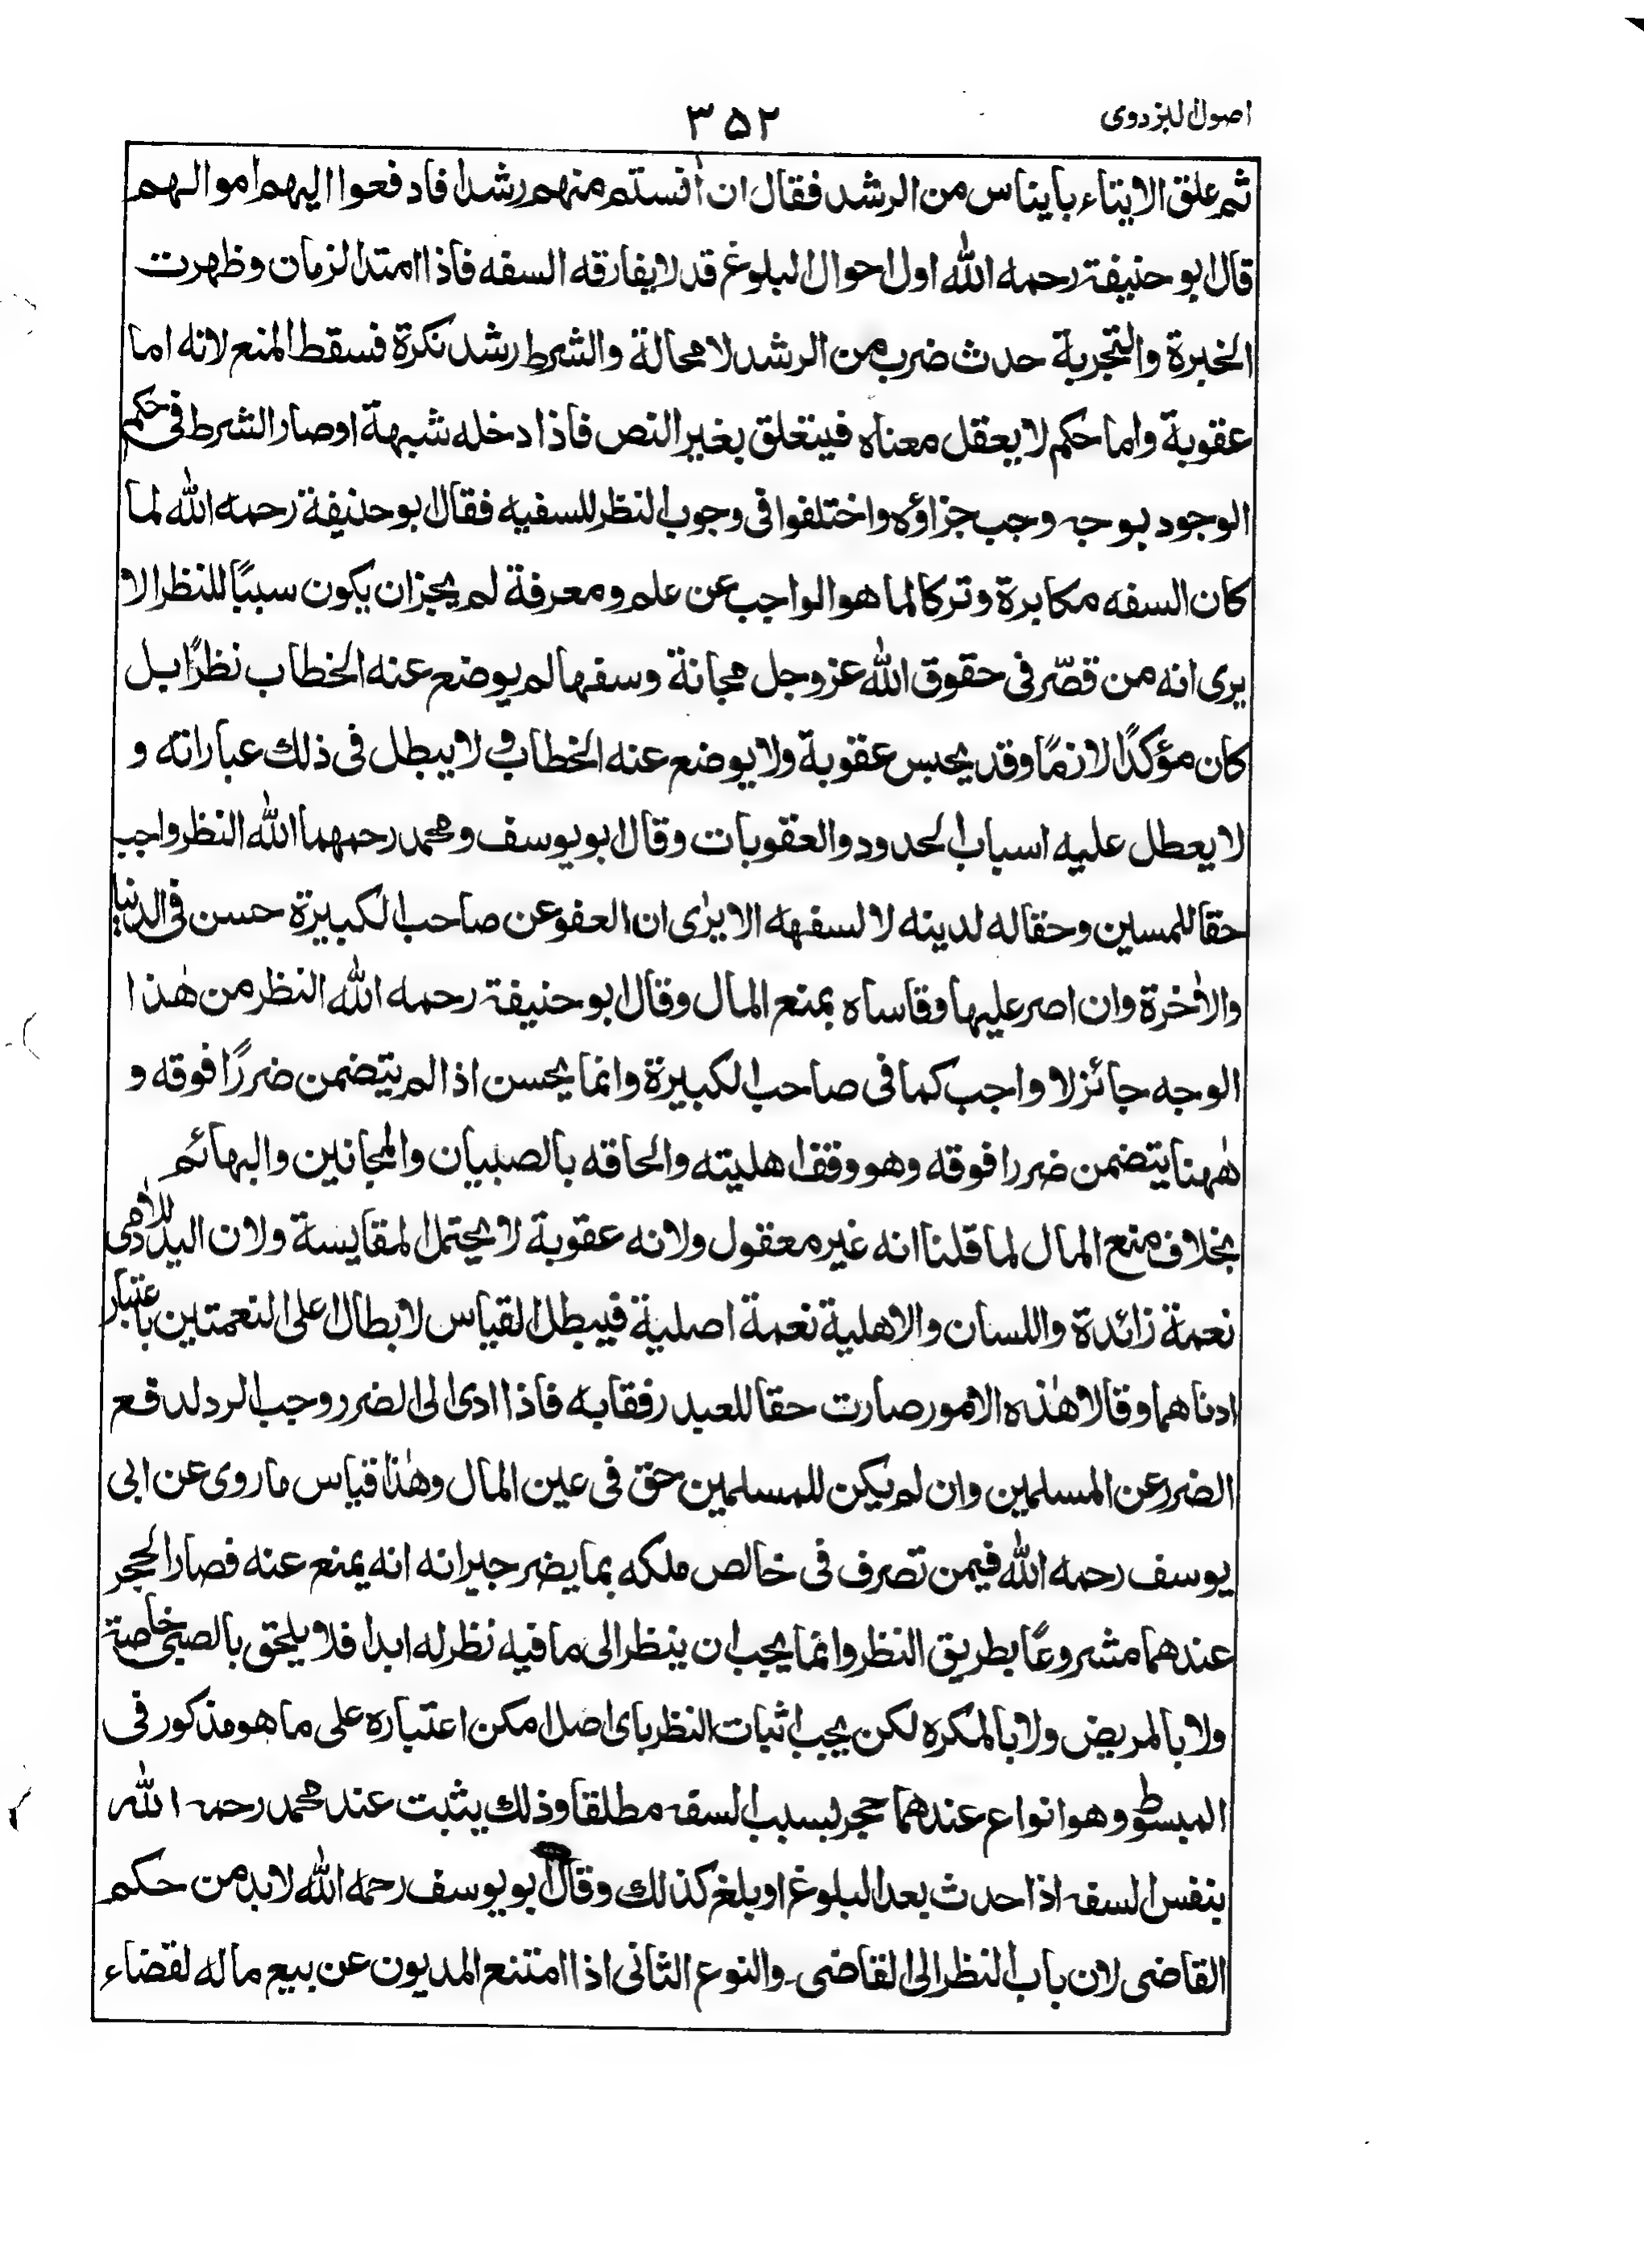 اصول البزدوی
۳۵۲
ثم علق الايتاء بايناس من الرشد فقال ان اٰنستم منهم رشدا فادفعوا اليهم اموالهم
قال ابو حنيفة رحمه الله اول احوال البلوغ قد لا يفارقه السفه فاذا امتد الزمان وظهرت
الخبرة والتجربة حدث ضرب من الرشد لا محالة والشرط رشد نكرة فسقط المنع لانه اما
عقوبة واما حكم لا يعقل معناه فيتعلق بغير النص فاذا دخله شبهة او صار الشرط فى حكم
الوجود بوجه وجب جزاؤه واختلفوا فى وجوب النظر للسفيه فقال ابو حنيفة رحمه الله لما
كان السفه مكابرة وتركا لما هو الواجب عن علم ومعرفة لم يجز ان يكون سببًا للنظر الا
يرى انه من قصّر فى حقوق الله عز وجل مجانة وسفها لم يوضع عنه الخطاب نظرًا بل
كان مؤكدًا لازمًا وقد يحبس عقوبة ولا يوضع عنه الخطاب و لا يبطل فى ذلك عباراته و
لا يعطل عليه اسباب الحدود والعقوبات وقال ابو يوسف ومحمد رحمهما الله النظر واجب
حقا للمسلين وحقا له لدينه لا لسفهه الا يرٰى ان العفو عن صاحب الكبيرة حسن فى الدنيا
والاٰخرة وان اصر عليها وقاساه بمنع المال وقال ابو حنيفة رحمه الله النظر من هٰذا
الوجه جائز لا واجب كما فى صاحب الكبيرة وانما يحسن اذا لم يتضمن ضررًا فوقه و
هٰهنا يتضمن ضررا فوقه وهو وقف اهليته والحاقه بالصبيان والمجانين والبهائم
بخلاف منع المال لما قلنا انه غير معقول ولانه عقوبة لا يحتمل المقايسة ولان اليد للاٰدمى
نعمة زائدة واللسان والاهلية نعمة اصلية فيبطل القياس لابطال اعلى النعمتين باعتبار
ادناهما وقالا هٰذه الامور صارت حقا للعبد رفقا به فاذا ادى الى الضرر وجب الرد لدفع
الضرر عن المسلمين وان لم يكن للمسلمين حق فى عين المال وهٰذا قياس ما روى عن ابى
يوسف رحمه الله فيمن تصرف فى خالص ملكه بما يضر جيرانه انه يمنع عنه فصار الحجر
عندهما مشروعًا بطريق النظر وانما يجب ان ينظر الى ما فيه نظر له ابدا فلا يلحق بالصبى خاصة
ولا بالمريض ولا بالمكره لكن يجب اثبات النظر باى اصل امكن اعتباره على ما هو مذكور فى
المبسوط وهو انواع عندهما حجر بسبب السفه مطلقا وذلك يثبت عند محمد رحمه الله
بنفس السفه اذا حدث بعد البلوغ او بلغ كذلك وقال ابو يوسف رحمه الله لا بد من حكم
القاضى لان باب النظر الى القاضى۔ والنوع الثانى اذا امتنع المديون عن بيع ماله لقضاء